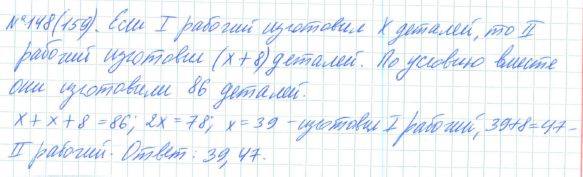 №148(159). Если I рабочий изготовил x деталей, то II
рабочий изготовил (x+8) деталей. По условию вместе
они изготовили 86 деталей.
x + x + 8 = 86; 2x = 78; x = 39 - изготовил I рабочий, 39+8=47-
II рабочий. Ответ: 39, 47.